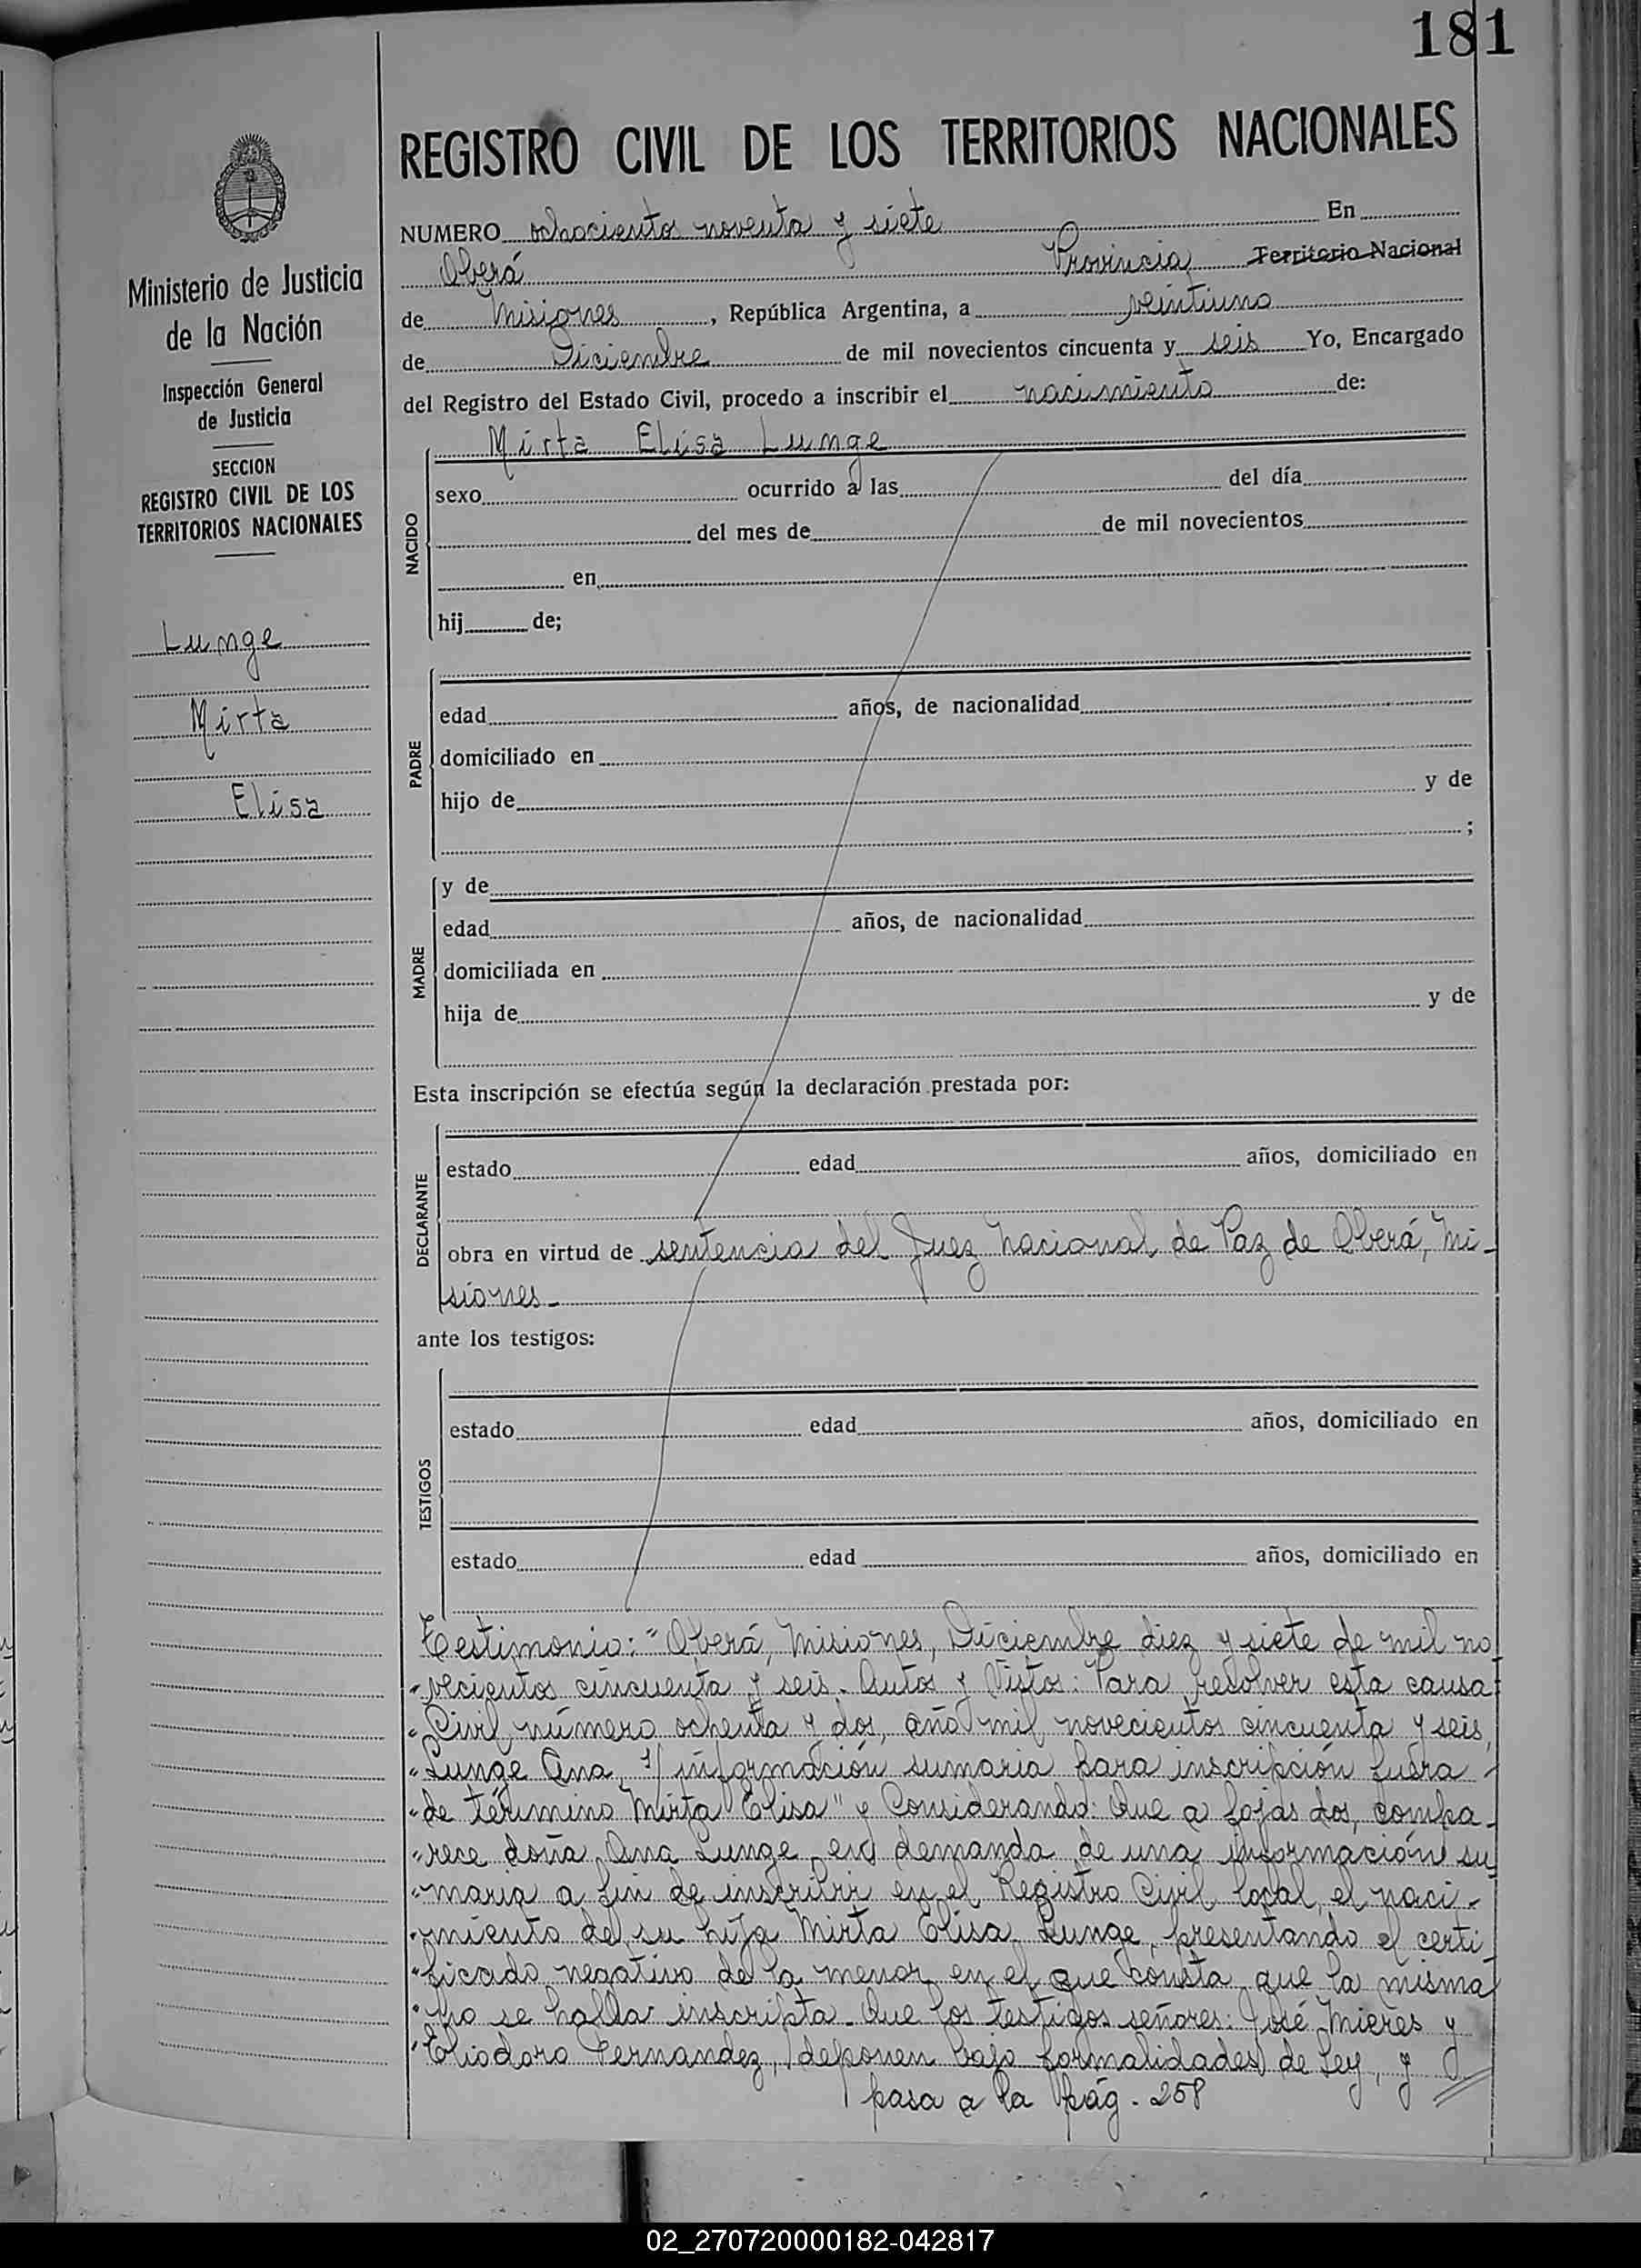 181
REGISTRO CIVIL DE LOS TERRITORIOS NACIONALES
Ministerio de Justicia
de la Nación
Inspección General
de Justicia
SECCION
REGISTRO CIVIL DE LOS
TERRITORIOS NACIONALES
Lunge
Mirta
Elisa
NUMERO ochocientos noventa y siete En
Oberá Provincia Territorio Nacional
de Misiones, República Argentina, a veintiuno
de Diciembre de mil novecientos cincuenta y seis Yo, Encargado
del Registro del Estado Civil, procedo a inscribir el nacimiento de:
NACIDO
Mirta Elisa Lunge
sexo ocurrido a las del día
del mes de de mil novecientos
en
hij de;
PADRE
edad años, de nacionalidad
domiciliado en
hijo de y de
;
MADRE
y de
edad años, de nacionalidad
domiciliada en
hija de y de
Esta inscripción se efectúa según la declaración prestada por:
DECLARANTE
estado edad años, domiciliado en
obra en virtud de sentencia del Juez Nacional de Paz de Oberá, Mi-
siones.
ante los testigos:
TESTIGOS
estado edad años, domiciliado en
estado edad años, domiciliado en
Testimonio: "Oberá, Misiones, Diciembre diez y siete de mil no
"vecientos cincuenta y seis. Autos y Vistos: Para resolver esta causa
"Civil número ochenta y dos, año mil novecientos cincuenta y seis,
"Lunge Ana, s/ información sumaria para inscripción fuera
"de término Mirta Elisa" y Considerando: Que a fojas dos, compa-
"rece doña Ana Lunge, en demanda de una información su
"maria a fin de inscribir en el Registro Civil local, el naci-
"miento de su hija Mirta Elisa Lunge, presentando el certi
"ficado negativo de la menor en el que consta que la misma
"no se halla inscripta. Que los testigos señores: José Mieres y
"Eliodoro Fernandez, deponen bajo formalidades de Ley, y
pasa a la pág. 258
02_270720000182-042817